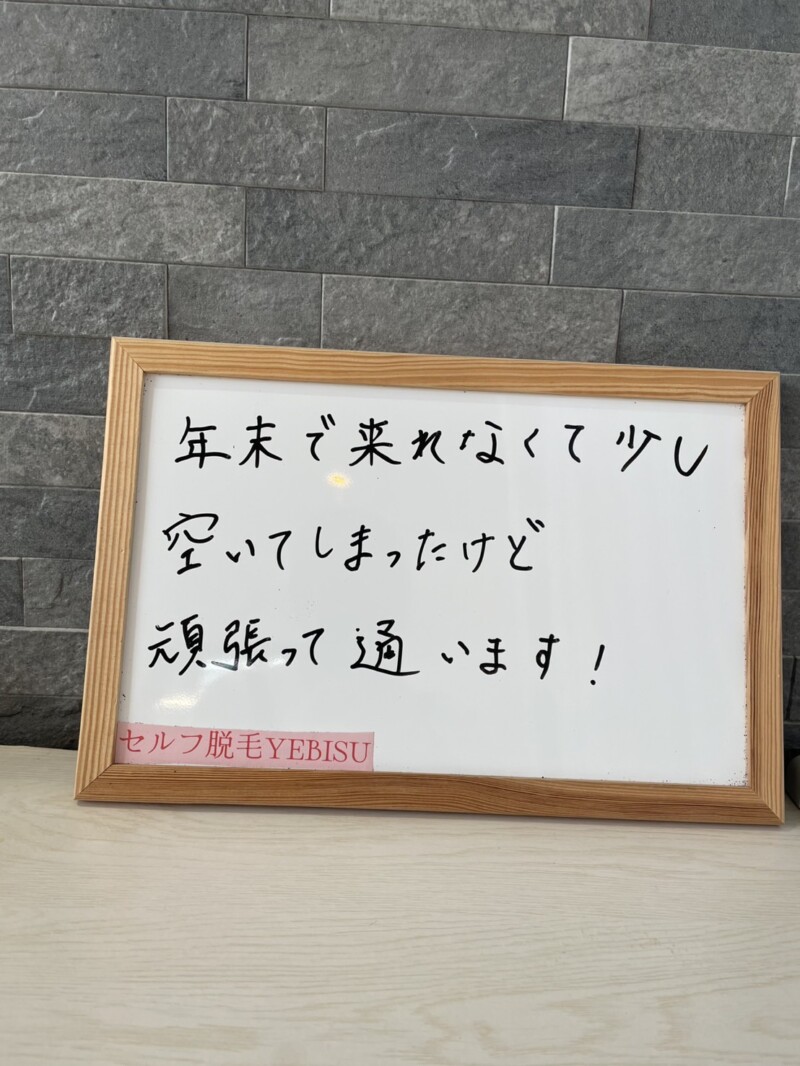 年末で来れなくて少し
空いてしまったけど
頑張って通います！
セルフ脱毛YEBISU